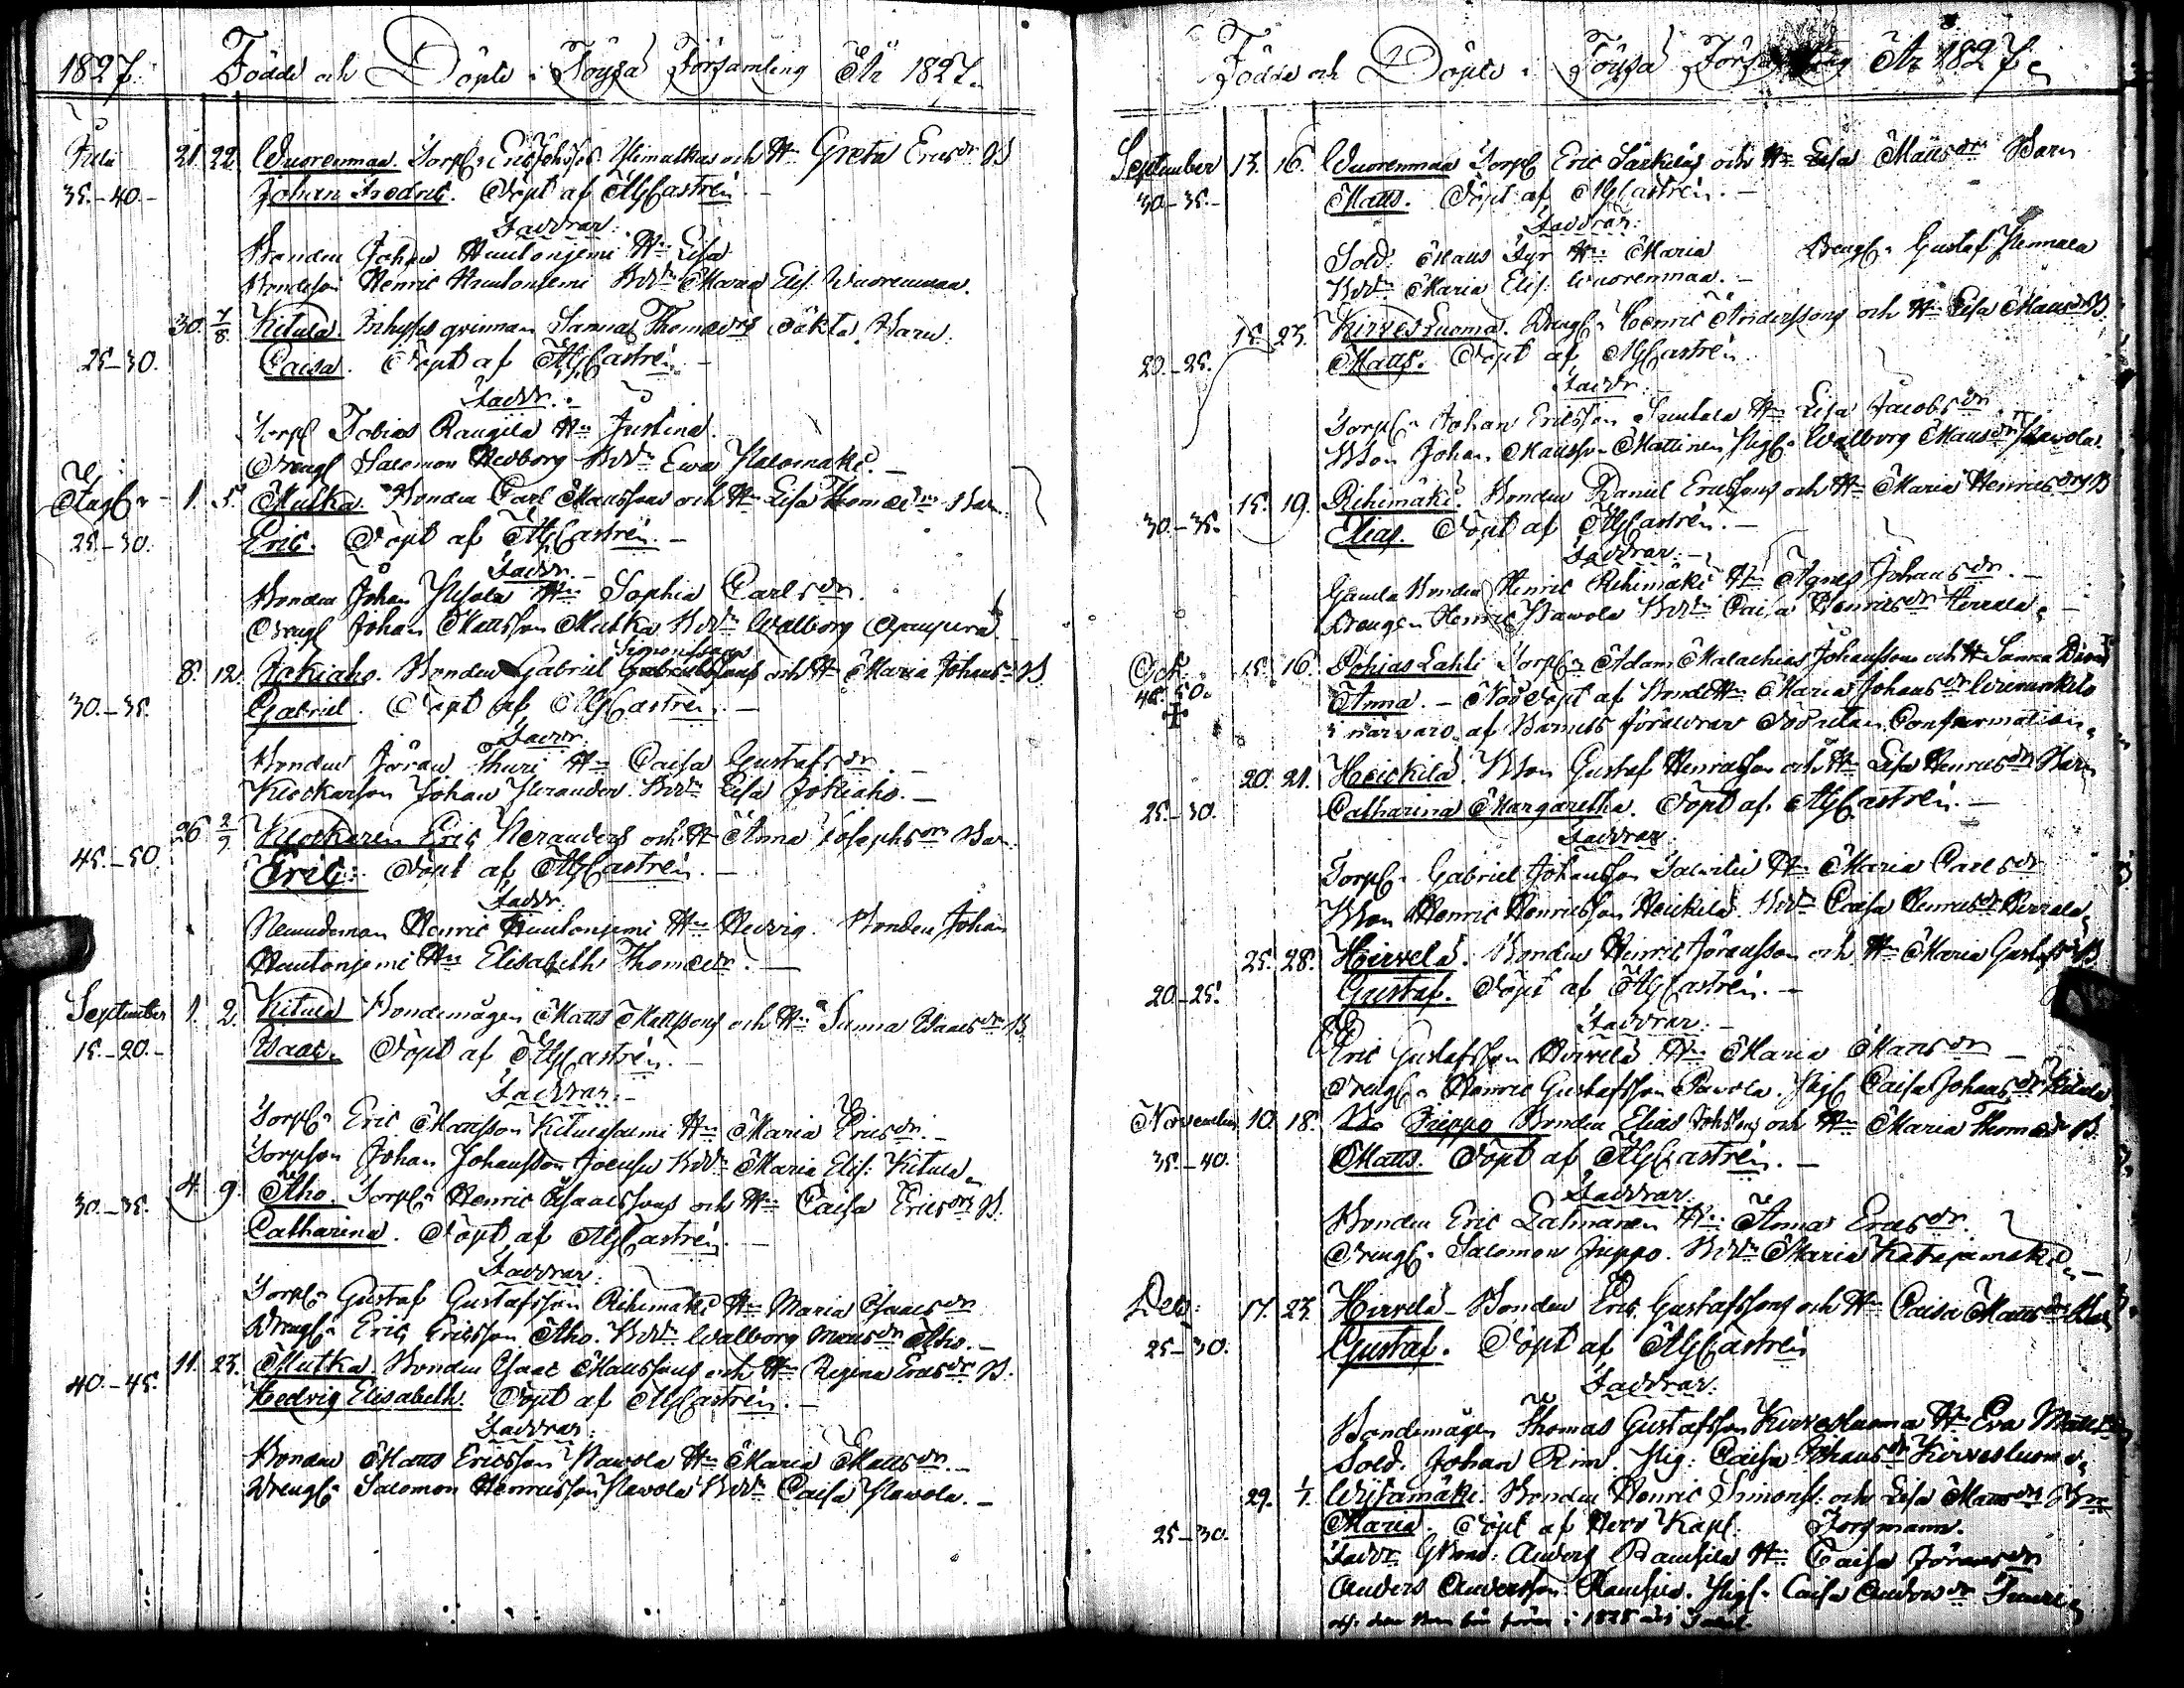 1827. Födde och Döpte i Töysä Församling År 1827.
Julii 21. 22. Wuorenmaa. Torp. Eric Johss. Ylimutkas och H. Greta Ericsdr B
35.-40.- Johan Fredric. Döpt af AGCastrén. -
Faddrar:
Bonden Johan Hautoniemi H. Lisa
Bondeson Henric Hautoniemi Bdr Maria Elis. Wuorenmaa.
30. 7/8. Kitula. Inhyses qvinnan Sanna Thomædrs oäkta Barn.
25-30. Caisa. Döpt af AGCastrén. -
Faddr.
Torp Tobias Raugila H. Justina.
Dreng Salomon Hedborg Bdr Ewa Halomäki. -
Aug. 1. 5. Mutka. Bonden Carl Mattssons och H. Lisa Thomædrs Barn.
25-30. Eric. Döpt af AGCastrén. -
Faddr. -
Bonden Johan H. Sophia Carlsdr.
Dreng Johan Mattsson Mutka Bdr Walborg
Simonssons
8. 12. Jokiaho. Bonden Gabriel Gabrielssons och H. Maria Johansdr B.
30.-35. Gabriel. Döpt af AGCastrén. -
Faddr.
Bonden Jöran Thuri H. Caisa Gustafsdr. -
Klockarson Johan Nerander. Bdr Lisa Jokiaho. -
26 2/9 Klockaren Eric Neranders och H. Anna Josephsdr Bar.
45.-50 Eric. Döpt af AGCastrén. -
Faddr.
Nemndeman Henric Hautoniemi H. Hedvig. Bonden Johan
Hautoniemi H. Elisabeth Thomædr. -
September 1. 2. Kitula Bondemågen Matts Mattssons och H. Sanna Isaacsdr B.
15.-20.- Isaac. Döpt af AGCastrén. -
Faddrar. -
Torp. Eric Mattsson Kitulasalmi H. Maria Ericsdr. -
Torpson Johan Johansson Bdr Maria Elis: Kitula.
4. 9. Aho. Torp. Henric Isaacssons och H. Caisa Ericsdrs B.
30.-35. Catharina. Döpt af AGCastrén. -
Faddrar:
Torp. Gustaf Gustafsson Rihimäki H. Maria Isaacsdr
Dreng. Eric Ericsson Aho. Bdr Walborg Mattsdr Aho. -
11. 23. Mutka. Bonden Isaac Mattssons och H. Regina Ericsdr B.
40.-45. Hedvig Elisabeth. Döpt af AGCastrén. -
Faddrar:
Bonden Matts Ericsson Pawola H. Maria Mattsdr. -
Dreng. Salomon Henricsson Pawola Bdr Caisa Pawola. -
Födde och Döpte i Töysä Församling År 1827.
September 13. 16. Wuorenmaa Torp Eric Särkiläs och H. Lisa Mattsdrs Barn
30.-35.- Matts. Döpt af AGCastrén. -
Faddrar:
Sold: Matts Fyr H. Maria Dreng. Gustaf
Bdr Maria Elis. Wuorenmaa. -
15. 23. Kirvesluoma. Dreng. Henric Anderssons och H. Lisa Mattsdr B.
20.-25. Matts. Döpt af AGCastrén
Faddr.
Torp. Johan Ericsson H. Lisa Jacobsdr
BSon Johan Mattsson Mattinen, Pig. Walborg Mattsdr Pawola.
15. 19. Rihimäki. Bonden Daniel Ericssons och H. Maria Henricsdrs B
30.-35. Elias. Döpt af AGCastrén. -
Faddrar: -
Gamla Bonden Henric Rihimäki H. Agnes Johansdr. -
Drengen Henric Pawola Bdr Caisa Henricsdr -
Oct. 15. 16. Pohjas Lahti Torp. Adam Malachias Johanssons och H. Sanna
45.50. Anna. - Nöddöpt af BondeH. Maria Johansdr
i närvaro af Barnets föräldrar Död utan Confirmation.
20. 21. Heickilä. BSon Gustaf Henricsson och H. Lisa Henricsdrs Barn
25.-30. Catharina Margaretha. Döpt af AGCastrén. -
Faddrar.
Torp. Gabriel Johansson H. Maria Carlsdr
BSon Henric Henricsson Heickilä. Bdr Caisa Henricsdr
25. 28. Hirvelä. Bonden Henric Jöransson och H. Maria Gustafsdr B.
20-25. Gustaf. Döpt af AGCastrén. -
Faddrar: -
Eric Gustafsson Hirvelä H. Maria Mattsdr -
Dreng. Henric Gustafsson Pawola. Pig. Caisa Johansdr
November 10. 18. Juppo Bonden Elias Johssons och H. Maria Thomædr B.
35.-40. Matts. Döpt af AGCastrén. -
Faddrar.
Bonden Eric H. Anna Ericsdr.
Dreng. Salomon Juppo. Bdr Maria Katajamäki -
Dec: 17. 23. Hirvelä - Bonden Eric Gustafssons och H. Caisa Mattsdr
25-30. Gustaf. Döpt af AGCastrén
Faddrar:
Bondemågen Thomas Gustafsson Kirvesluoma H. Eva Mattsdr
Sold. Johan Rim. Pig. Caisa Johansdr Kirvesluoma.
29. 1/1. Wisamäki. Bonden Henric Simons. och Lisa Mattsdrs
25-30. Maria. Döpt af Herr Kapl. Forsmann.
Faddr. Anders Ranssila H. Caisa Jöransdr
Anders Andersson Pig. Caisa Andersdr